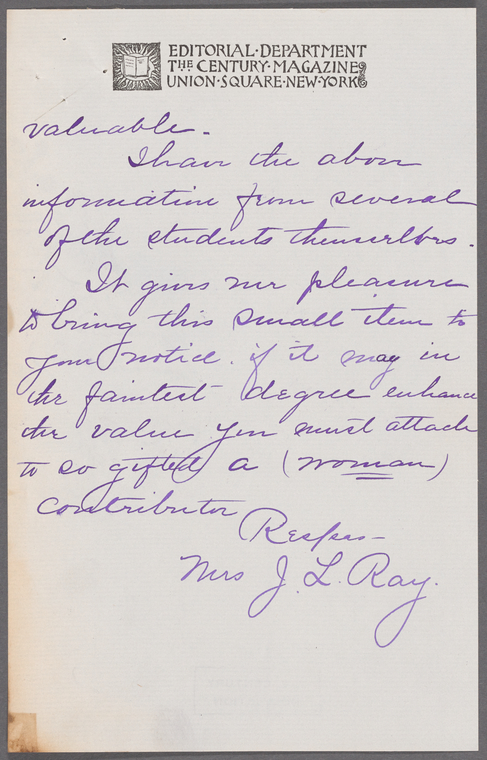 EDITORIAL·DEPARTMENT
THE CENTURY·MAGAZINE
UNION·SQUARE·NEW·YORK
valuable.
I have the above
information from several
of the students themselves.
It gives me pleasure
to bring this small item to
your notice. if it may in
the faintest degree enhance
the value you must attach
to so gifted a (woman)
contributor
Respes—
Mrs J. L. Ray.